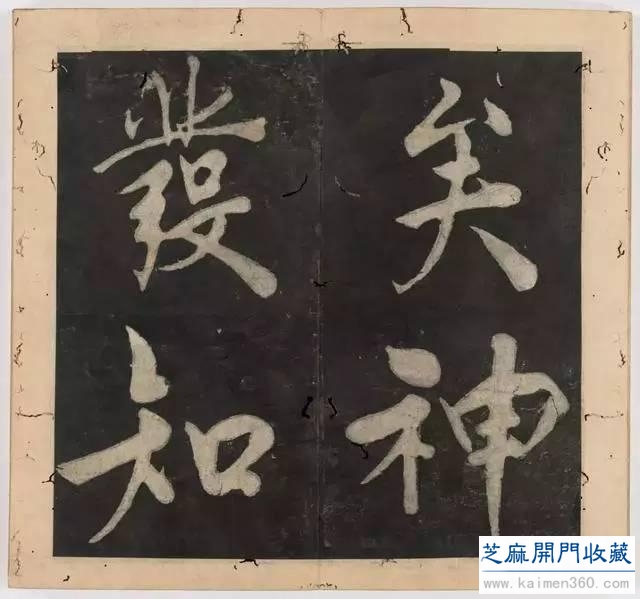 矣神
發知
芝麻開門收藏
www.kaimen360.com